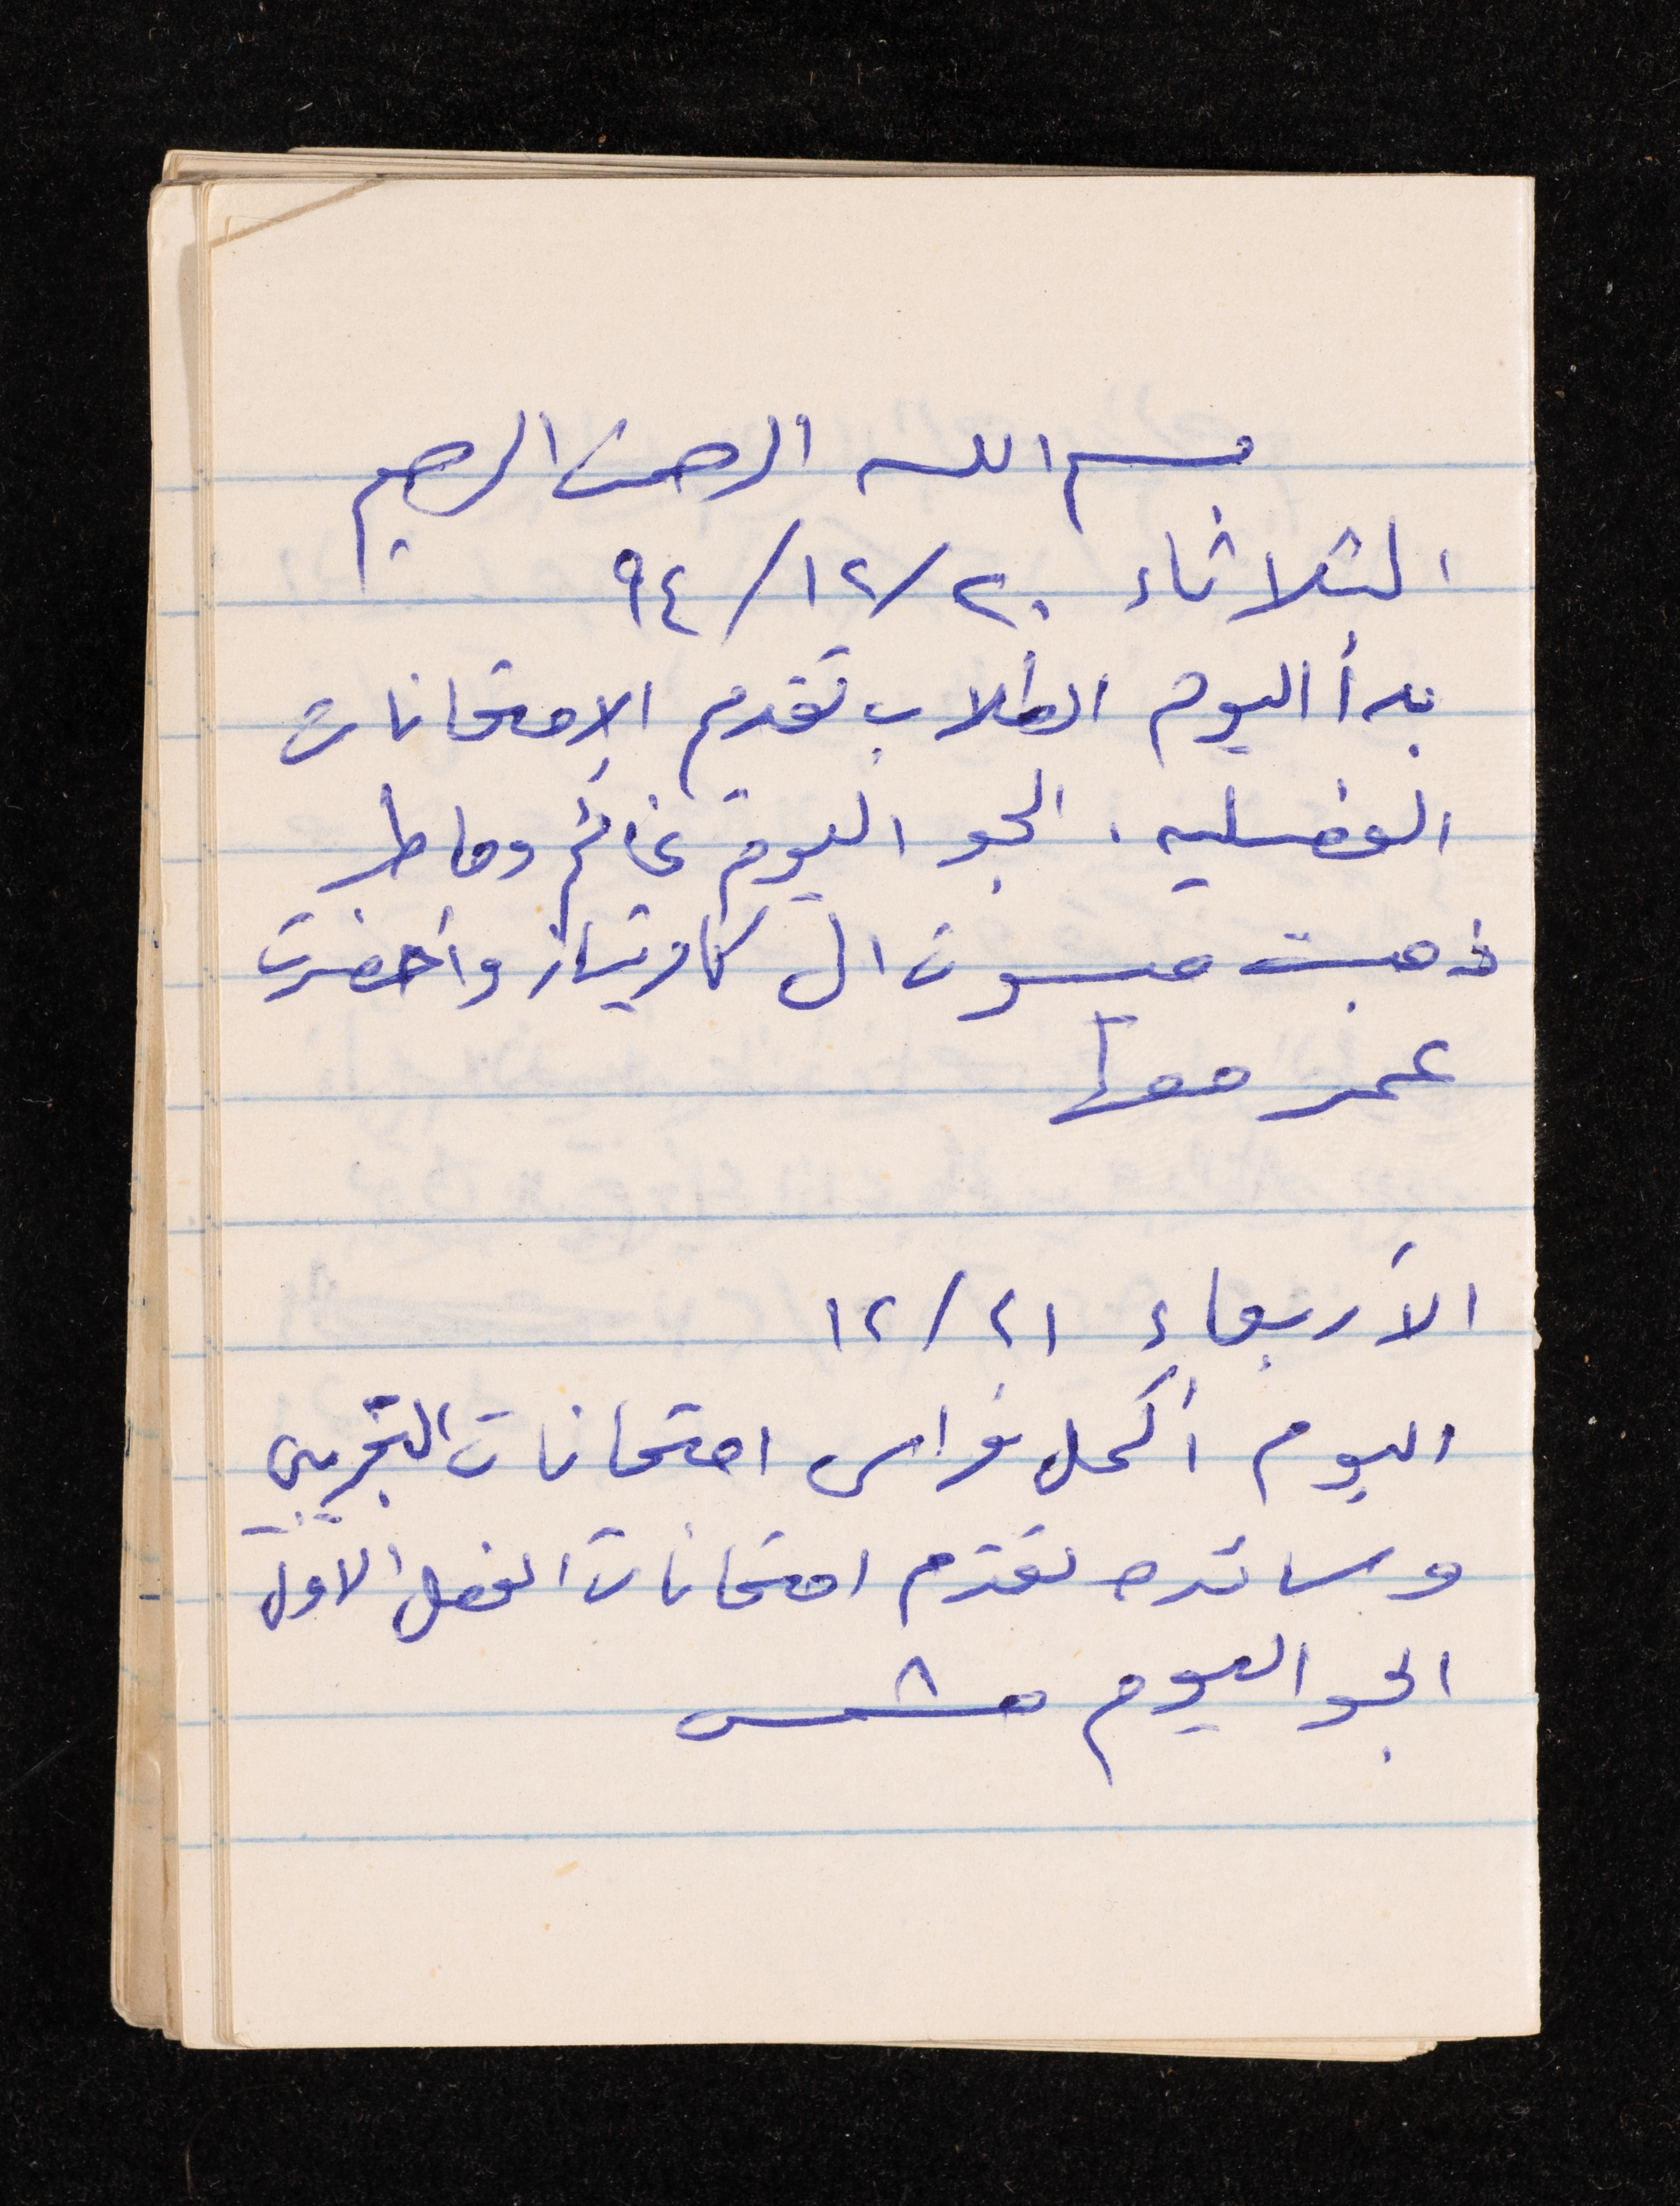 بسم الله الرحمن الرحيم
الثلاثاء ٢٠/١٢/٩٤
بدأ اليوم الطلاب تقدم الإمتحانات
الفصليه. الجو اليوم غائم وماطر
ذهبت ميسون ال كاريتاز واحضرت
عمر معها
الأربعاء ٢١/١٢
اليوم أكمل فراس امتحانات التجريبي
وسائده تقدم امتحانات الفصل الاول
الجو اليوم مشمس